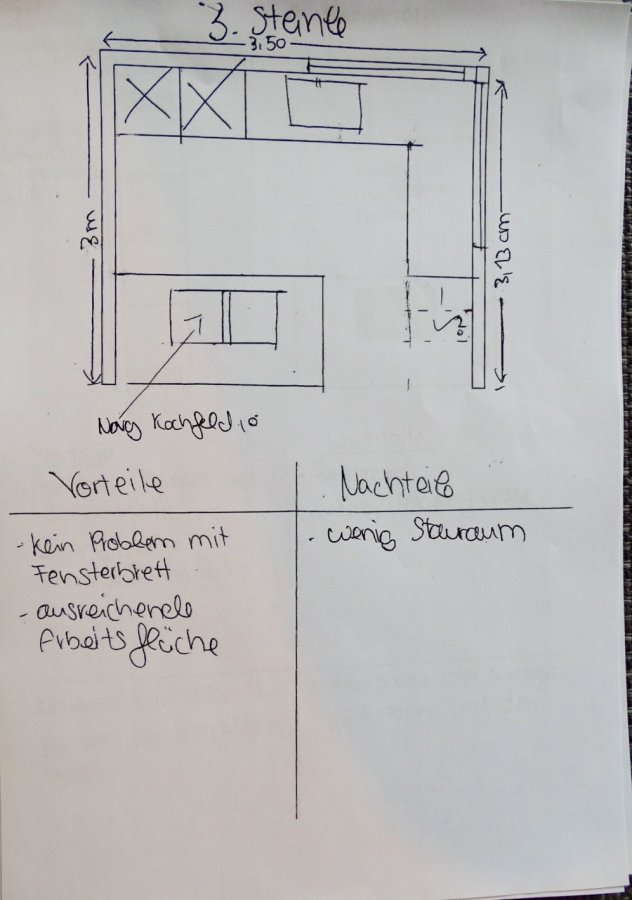 3.
3,50
3m
3,13cm
Kochfeld
Vorteile
Nachteile
- kein Problem mit
Fensterbrett
- ausreichende
Arbeitsfläche
- wenig Stauraum